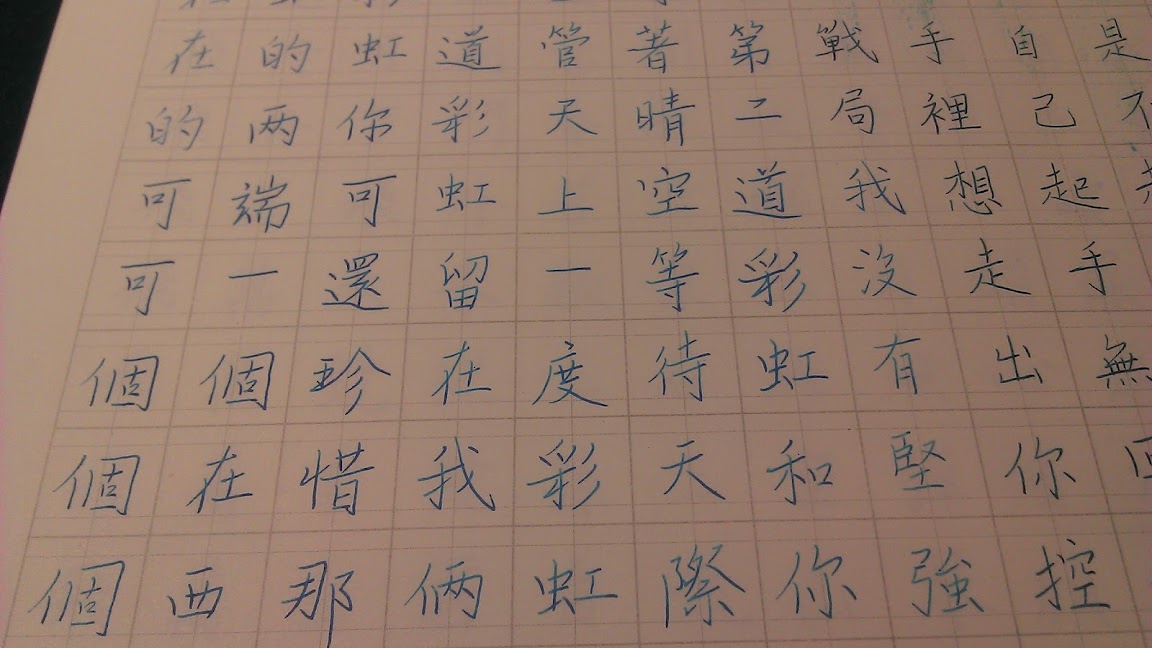 在的可可個個個
的两端一個在西
虹你可還珍惜那
道彩虹留在我倆
管天上一度彩虹
著晴空等待天際
第二道彩虹和你
戰局我沒有堅強
手裡想走出你控
自己起手無
是